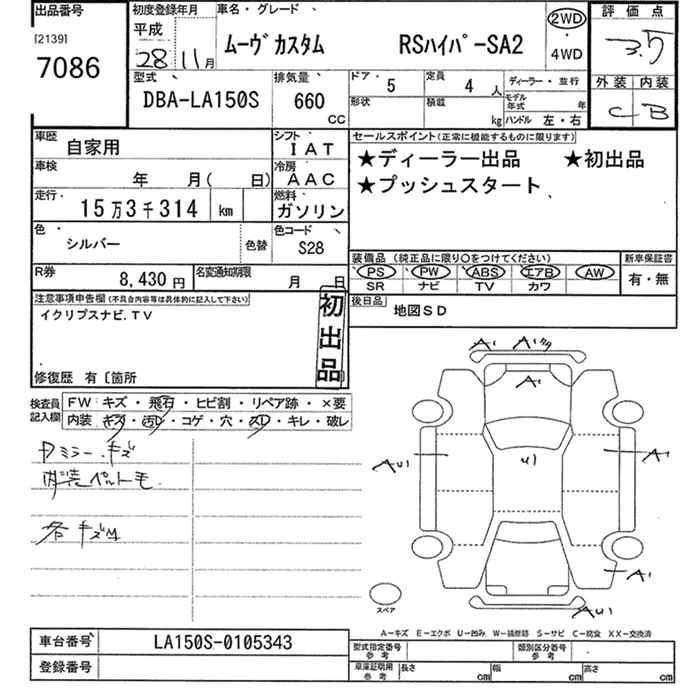 出品番号
[2139]
7086
初度登録年月
平成
28 11月
車名・グレード
ムーヴカスタム RSハイパーSA2
2WD
・
4WD
評価点
3.5
外装 内装
C B
型式
DBA-LA150S
排気量
660
CC
ドア・
5
定員
4 人
形状
積載
kg
ディーラー・並行
モデル年式 年
ハンドル 左・右
車歴
自家用
シフト
IAT
車検
年 月( 日)
冷房
AAC
走行
15万3千314 km
燃料
ガソリン
色
シルバー
色替
色コード
S28
R券
8,430円
名変通知期限
月 日
セールスポイント(正常に機能するものに限ります)
★ディーラー出品 ★初出品
★プッシュスタート
装備品(純正品に限り〇をつけてください)
PS PW ABS エアB AW
SR ナビ TV カワ
新車保証書
有・無
後日品
地図SD
注意事項申告欄(不具合内容等は具体的に記入して下さい)
イクリプスナビ.TV
初出品
修復歴 有〔箇所
検査員記入欄
FW キズ・飛石・ヒビ割・リペア跡・×要
内装 キズ・汚レ・コゲ・穴・スレ・キレ・破レ
ミラー キズ
内装ペット毛
各キズ
A1 A1
A1
AU1 U1 A1
A1
AU1
スペア
A-キズ E-エクボ U-凹み W-補修跡 S-サビ C-腐食 XX-交換済
車台番号
LA150S-0105343
登録番号
型式指定番号
参考
類別区分番号
参考
車庫証明用
参考
長さ cm 幅 cm 高さ cm